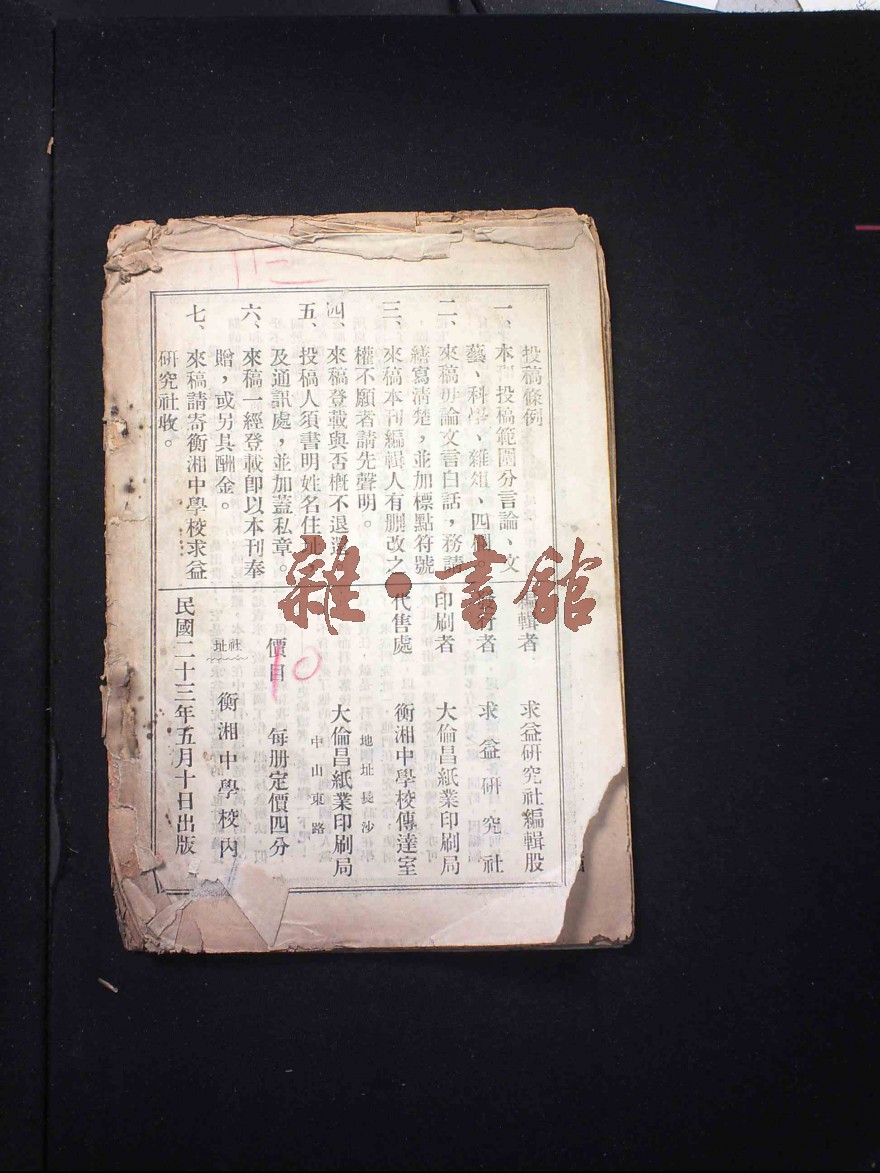 投稿條例
一、本刊投稿範圍分言論、文
藝、科學、雜俎、四欄。
二、來稿毋論文言白話，務請
繕寫清楚，並加標點符號
三、來稿本刊編輯人有删改之
權不願者請先聲明。
四、來稿登載與否概不退還
五、投稿人須書明姓名住址，
及通訊處，並加蓋私章。
六、來稿一經登載卽以本刊奉
贈，或另具酬金。
七、來稿請寄衡湘中學校求益
硏究社收。
編輯者 求益硏究社編輯股
發行者 求益硏究社
印刷者 大倫昌紙業印刷局
代售處 衡湘中學校傳達室
地址長沙
大倫昌紙業印刷局
中山東路
價目 每册定價四分
社址 衡湘中學校內
民國二十三年五月十日出版
10
雜·書館